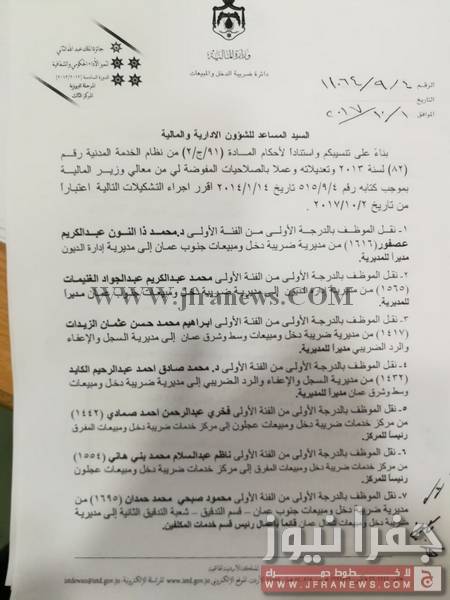 وزارة المالية
دائرة ضريبة الدخل والمبيعات
جائزة الملك عبدالله الثاني
لتميز الأداء الحكومي والشفافية
الدورة السادسة (٢٠١٢/٢٠١٣)
المركز الثالث
الرقم ١١٠٦٤/٩/٤
التاريخ
الموافق ٢٠١٧/١٠/١
السيد المساعد للشؤون الادارية والمالية
بناءً على تنسيبكم واستناداً لأحكام المادة (٩١/ج/٢) من نظام الخدمة المدنية رقم
(٨٢) لسنة ٢٠١٣ وتعديلاته وعملا بالصلاحيات المفوضة لي من معالي وزير المالية
بموجب كتابه رقم ٥١٥/٩/٤ تاريخ ٢٠١٤/١/١٤ اقرر اجراء التشكيلات التالية اعتباراً
من تاريخ ٢٠١٧/١٠/٢
١- نقل الموظف بالدرجة الأولى من الفئة الأولى د.محمد ذا النون عبدالكريم
عصفور(١٦١٦) من مديرية ضريبة دخل ومبيعات جنوب عمان إلى مديرية إدارة الديون
مديراً للمديرية.
٢- نقل الموظف بالدرجة الأولى من الفئة الأولى محمد عبدالكريم عبدالجواد الغنيمات
(١٥٦٥) من مديرية إدارة الديون إلى مديرية ضريبة دخل ومبيعات عمان مديراً
للمديرية.
٣- نقل الموظف بالدرجة الأولى من الفئة الأولى ابراهيم محمد حسن عثمان الزيدات
(١٤١٧) من مديرية ضريبة دخل ومبيعات وسط وشرق عمان إلى مديرية السجل والإعفاء
والرد الضريبي مديراً للمديرية.
٤- نقل الموظف بالدرجة الأولى من الفئة الأولى د. محمد صادق احمد عبدالرحيم الكايد
(١٤٣٢) من مديرية السجل والإعفاء والرد الضريبي إلى مديرية ضريبة دخل ومبيعات
وسط وشرق عمان مديراً للمديرية.
٥- نقل الموظف بالدرجة الأولى من الفئة الأولى فخري عبدالرحمن احمد صمادي (١٤٤٢)
من مركز خدمات ضريبة دخل ومبيعات عجلون إلى مركز خدمات ضريبة دخل ومبيعات المفرق
رئيساً للمركز.
٦- نقل الموظف بالدرجة الأولى من الفئة الأولى ناظم عبدالسلام محمد بني هاني (١٥٥٤)
من مركز خدمات ضريبة دخل ومبيعات المفرق إلى مركز خدمات ضريبة دخل ومبيعات عجلون
رئيساً للمركز.
٧- نقل الموظف بالدرجة الأولى من الفئة الأولى محمود صبحي محمد حمدان (١٦٩٥) من
مديرية ضريبة دخل ومبيعات جنوب عمان - قسم التدقيق - شعبة التدقيق الثانية إلى مديرية
ضريبة دخل ومبيعات شمال عمان قائماً بأعمال رئيس قسم خدمات المكلفين.
WWW.JFRANEWS.COM
المملكة الأردنية الهاشمية
جفرا نيوز
لا خطوط حمراء
WWW.JFRANEWS.COM